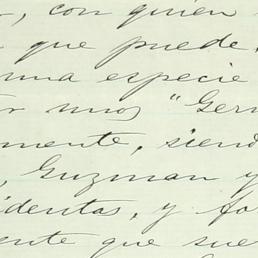 , con quien
que puede.
una especie
unos "Ger
mente, siend
, Guzman y
identas, y fo
ente que sue